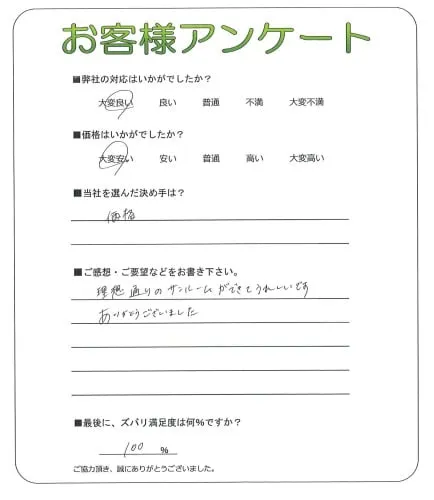 お客様アンケート
■弊社の対応はいかがでしたか？
大変良い 良い 普通 不満 大変不満
■価格はいかがでしたか？
大変安い 安い 普通 高い 大変高い
■当社を選んだ決め手は？
価格
■ご感想・ご要望などをお書き下さい。
理想通りのサンルームができてうれしいです
ありがとうございました
■最後に、ズバリ満足度は何％ですか？
100 ％
ご協力頂き、誠にありがとうございました。